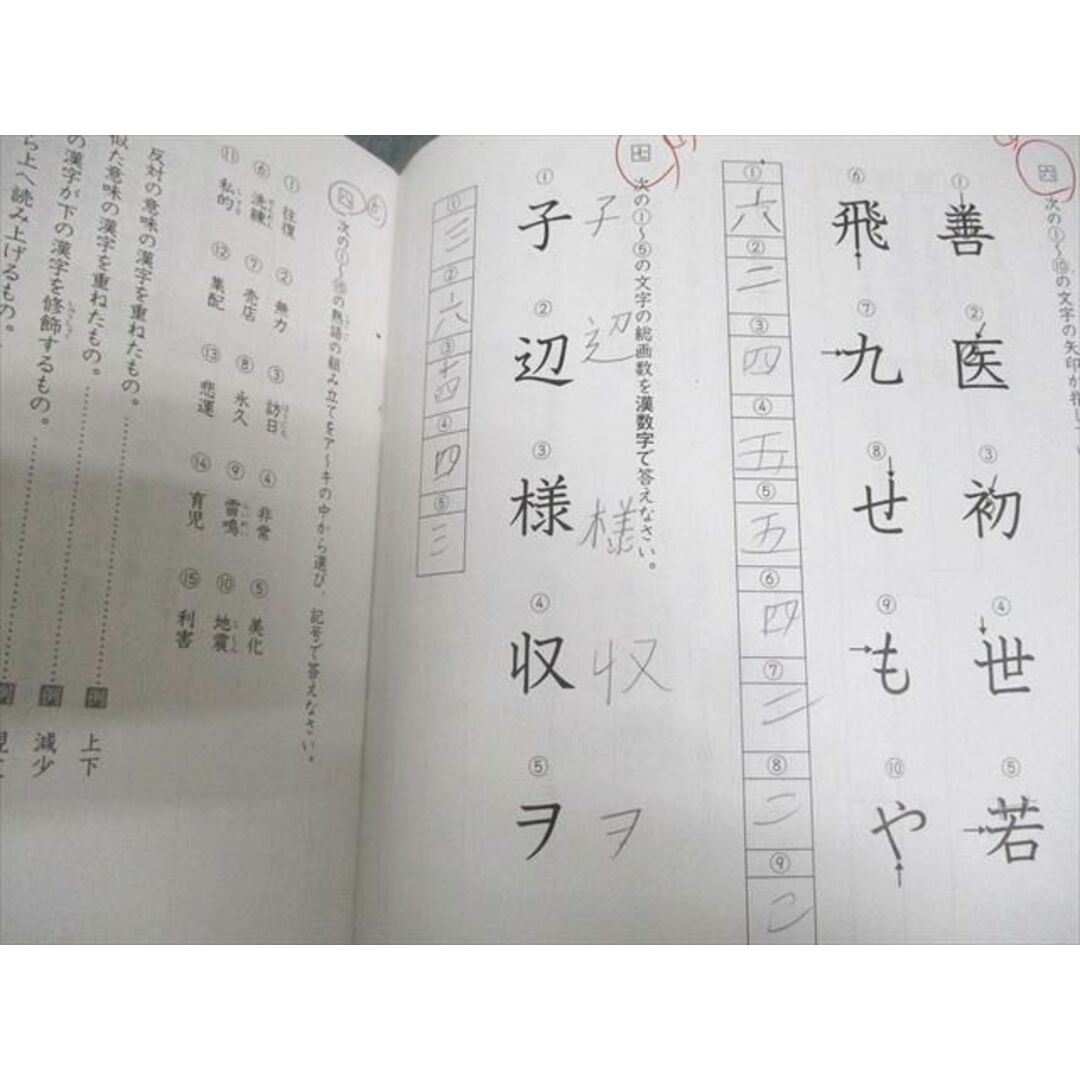 六
次の①～⑩の文字の矢印が指し
① 善
② 医
③ 初
④ 世
⑤ 若
⑥ 飛
⑦ 九
⑧ せ
⑨ も
⑩ や
① 六
② 二
③ 四
④ 五
⑤ 五
⑥ 四
⑦ 二
⑧ 二
⑨
七
次の①～⑤の文字の総画数を漢数字で答えなさい。
子 辺 様 収 ヲ
① 子
② 辺
③ 様
④ 収
⑤ ヲ
① 三
② 六
③ 十四
④ 四
⑤ 三
四
次の①～⑮の熟語の組み立てをア～キの中から選び、記号で答えなさい。
① 往復
② 無力
③ 訪日
④ 非常
⑤ 美化
⑥ 洗練
⑦ 売店
⑧ 永久
⑨ 雷鳴
⑩ 地震
⑪ 私的
⑫ 集配
⑬ 悲運
⑭ 育児
⑮ 利害
反対の意味の漢字を重ねたもの。 例 上下
似た意味の漢字を重ねたもの。 例 減少
の漢字が下の漢字を修飾するもの。
ら上へ読み上げるもの。